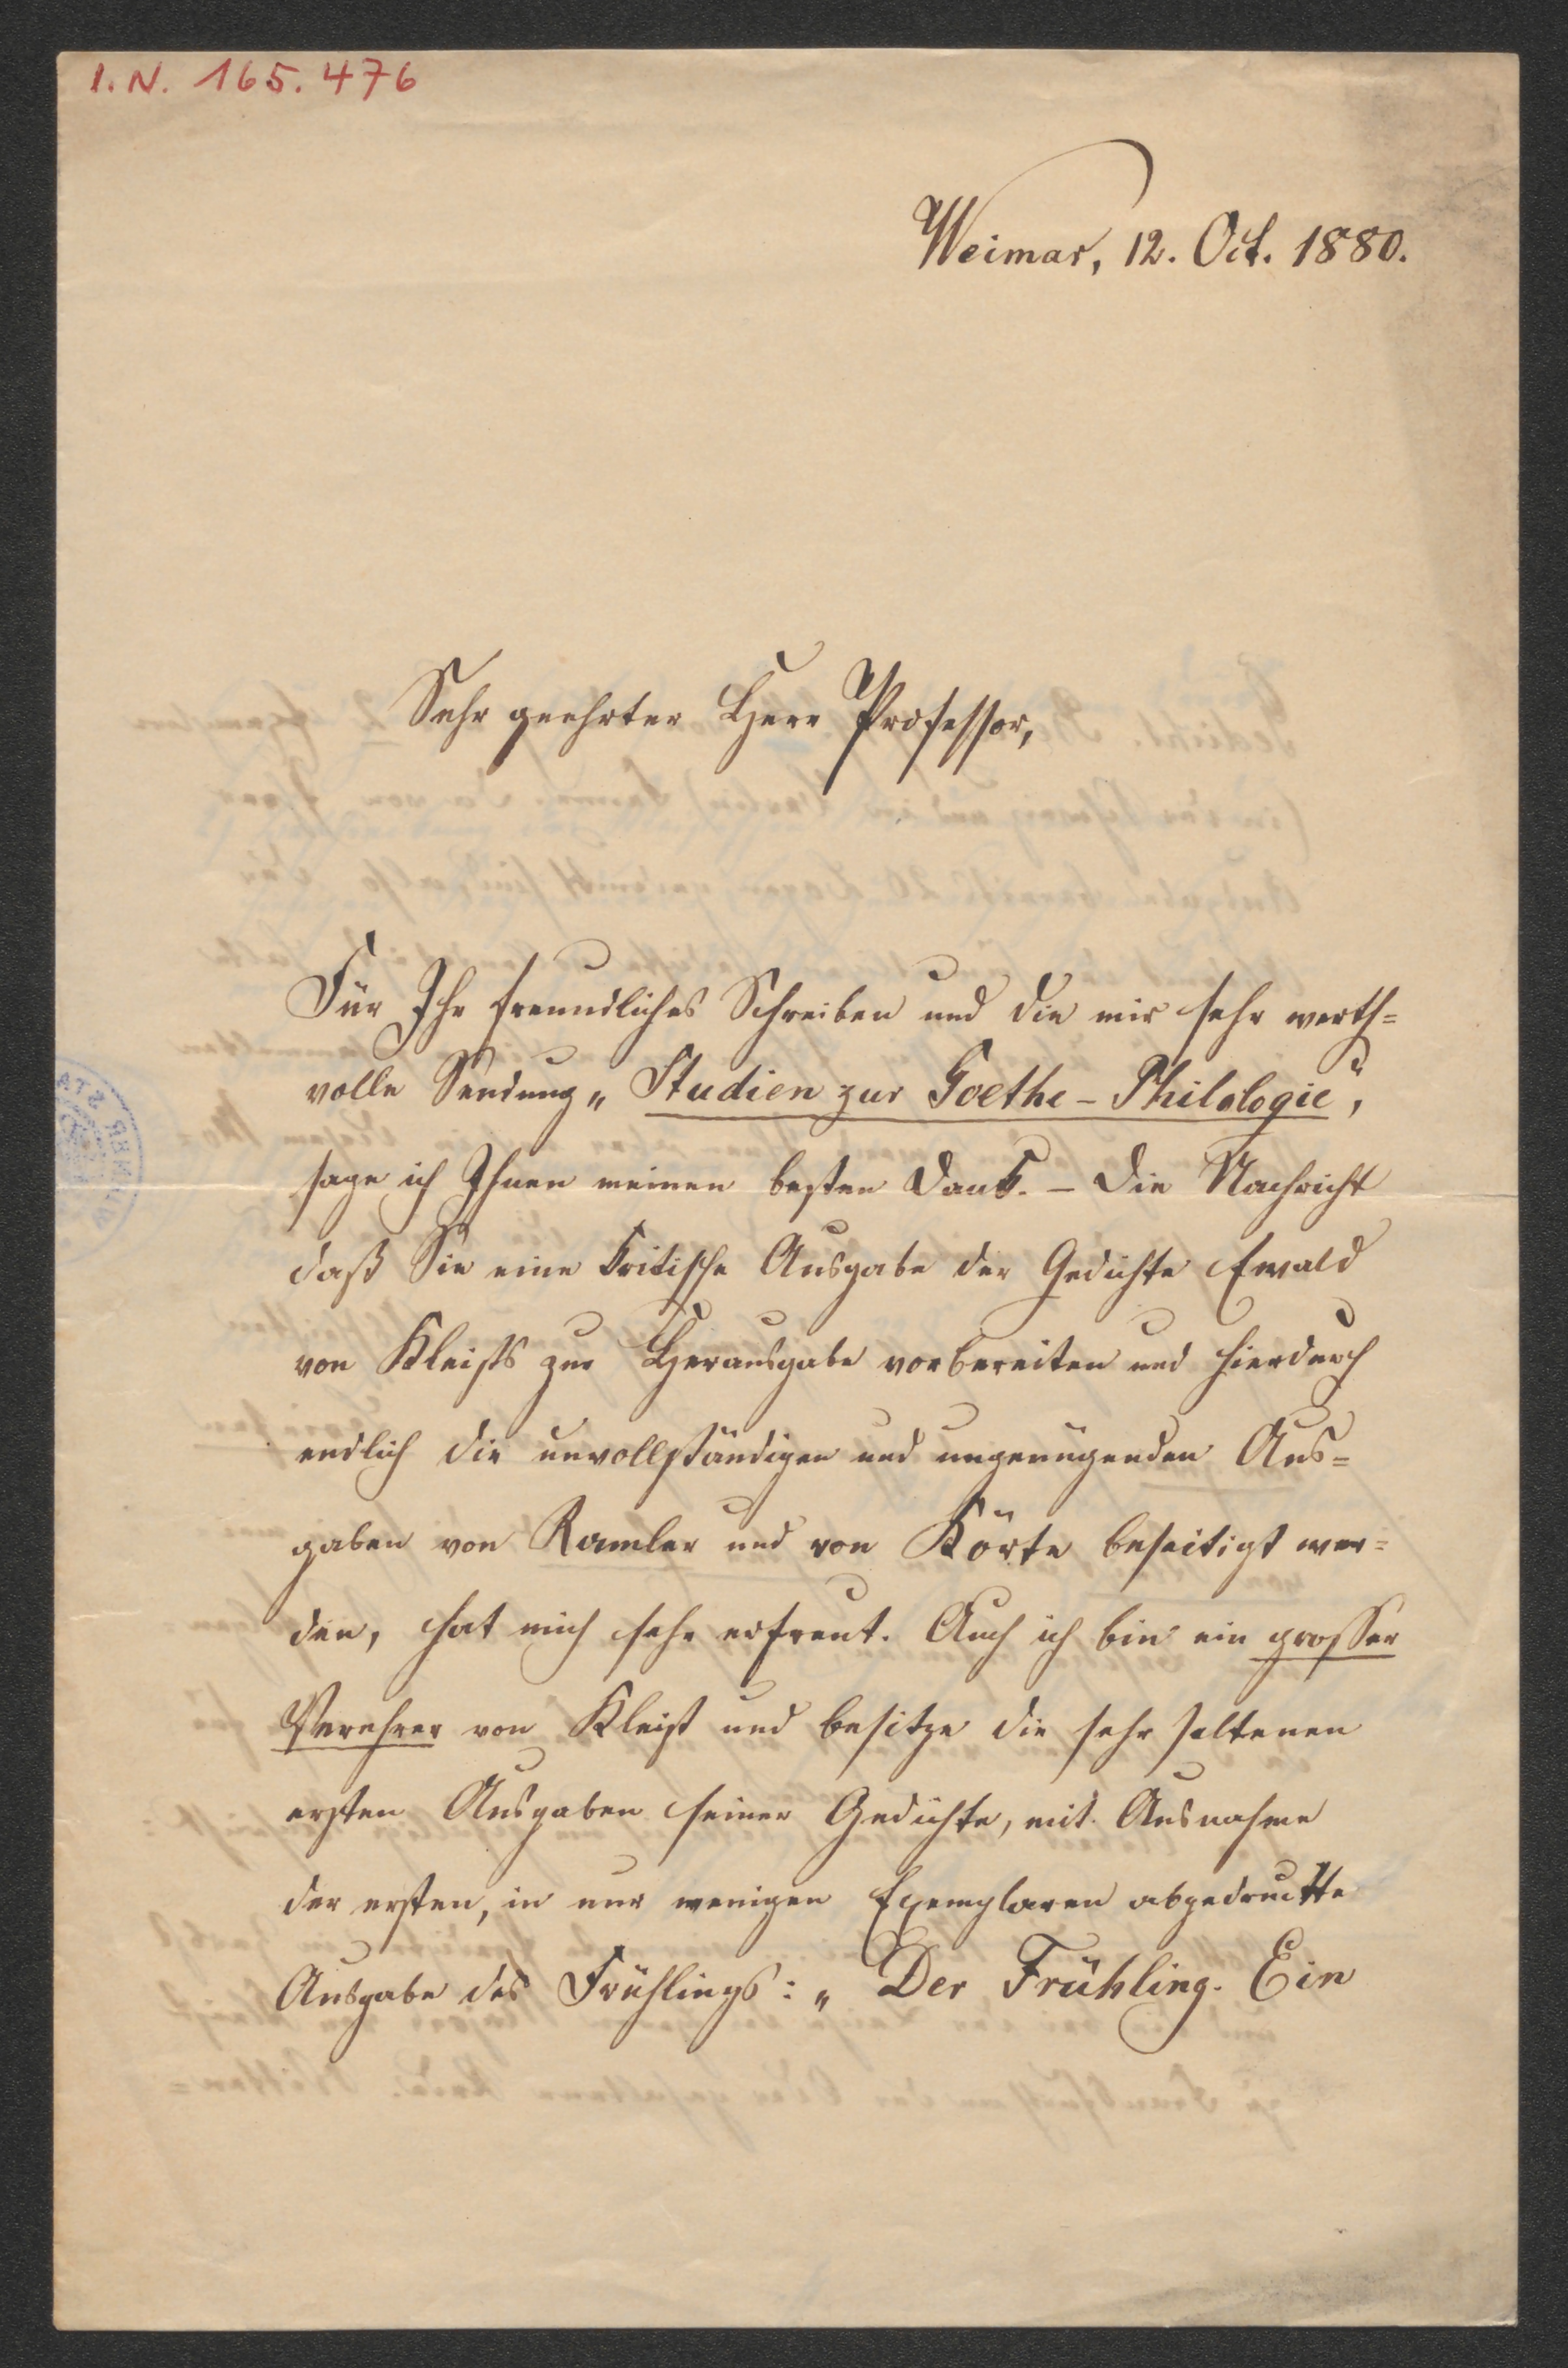 I. N. 165.476
Weimar, 12. Oct. 1880.
Sehr geehrter Herr Professor,
Für Ihr freundliches Schreiben und die mir sehr werth=
volle Sendung „Studien zur Goethe-Philologie“,
sage ich Ihnen meinen besten Dank. – Die Nachricht
daß Sie eine kritische Ausgabe der Gedichte Ewald
von Kleists zur Herausgabe vorbereiten und hierdurch
endlich die unvollständigen und ungenügenden Aus=
gaben von Ramler und von Körte beseitigt wer=
den, hat mich sehr erfreut. Auch ich bin ein grosser
Verehrer von Kleist und besitze die sehr seltenen
ersten Ausgaben seiner Gedichte, mit Ausnahme
der ersten, in nur wenigen Exemplaren abgedruckte
Ausgabe des Frühlings: „Der Frühling. Ein